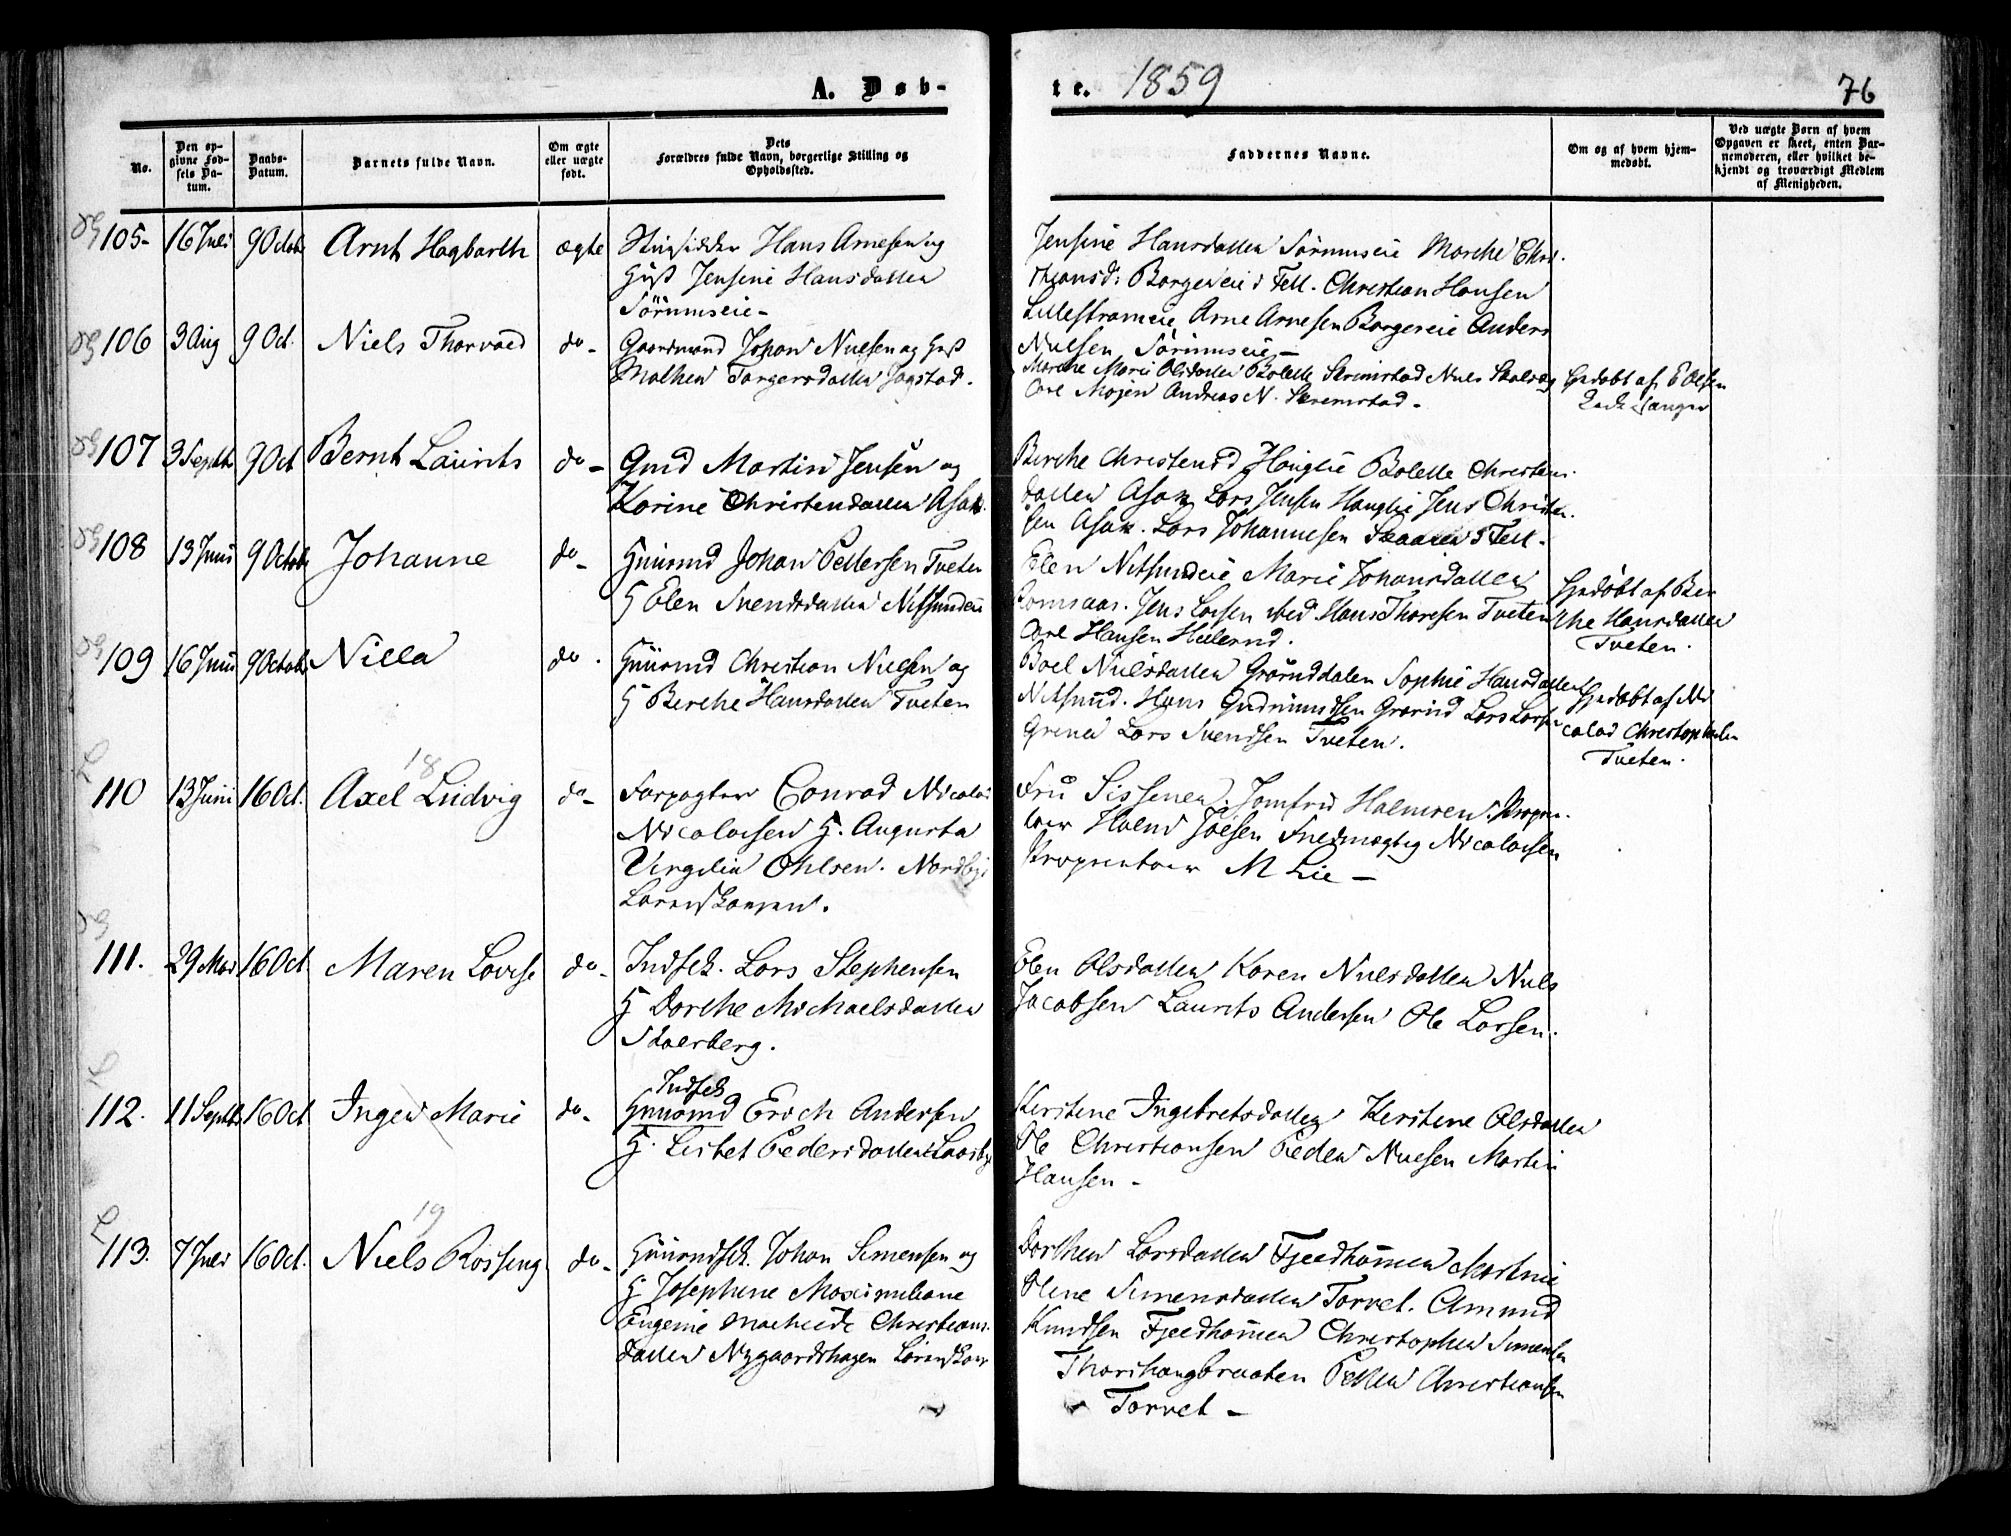 A. Døb-
te. 1859
76
No.
Den op-
givne Fød-
sels Da-
tum.
Daabs-
Datum.
Barnets fulde Navn.
Om ægte
eller uægte
født.
Dets
Forældres fulde Navn, borgerlige Stilling og
Opholdssted.
Faddernes Navne.
Om og af hvem hjem-
medøbt.
Ved uægte Børn af hvem
Opgaven er skeet, enten Bar-
nemoderen, eller hvilket be-
kjendt og troværdigt Medlem
af Menigheden.
105- 16 Juli 9 Octob Arnt Hagbarth ægte Huusidder Hans Arnesen og
Hust Jensine Hansdatter
Sørumseie-
Jensine Hansdatter Sørumseie Marthe Chri-
stiansd: Borgeneie i Fett. Christian Hansen
Lillestrømeie Arne Arnesen Borgeneie Anders
Nielsen Sørumseie-
106 3 Aug 9 Oct. Niels Thorvald do- Gaardmand Johan Nielsen og Hust
Mathea Torgersdatter Jogstad.
Marthe Marie Olsdatter Bolette Skremstad Niels
Carl Mojen Andreas N. Skremstad-
Hjdøbt af E Olsen
107 3 Septb 9 Oct Bernt Laurits do- Gmd Martin Jensen og
Karine Christensdatter Asak.
Berthe Christensd Hauglie Bolette Christens-
datter Asak Lars Jensen Hauglie Jens Christen-
sen Asak. Lars Johannesen i Fett-
108 13 Juni 9 Octob Johanne do- Huusmd Johan Pettersen Tveten
H Elen Svendsdatter Nitsundeie
Elen Nitsundeie Marie Johansdatter
Romsaas. Jens Larsen ibed Hans Thoresen Tveten
Carl Hansen
Hjdøbt af Ber
the Hansdatter
Tveten.
109 16 Juni 9 Octob Nilla do. Huusmd Christian Nielsen og
H Berthe Hansdatter Tveten
Boel Nielsdatter Sophie Hansdatter
Nitsund. Hans Gudmundsen Lars Larsen
Lars Svendsen Tveten.
Hjdøbt af Ni
colai Christophersen
Tveten.
18
L
110 13 Juni 16 Oct. Axel Ludvig do- Forpagter Conrad Nicolai
Nicolaisen H. Augusta
Virgilia Ohlsen. Nordbye
Lørenskougen.
Fru Sissener. Jomfru Halmren. Proprie-
tær Holm Joesen Fuldmægtig Nicolaisen
Proprietær M Lie-
111. 29 Mai 16 Oct Maren Lovise do- Indsk. Lars Stephensen
H Dorthe Michaelsdatter
Skaerberg.
Elen Olsdatter Karen Nielsdatter Niels
Jacobsen Laurits Andersen Ole Larsen.
112. 11 Septb 16 Oct Inger Marie do- Indsk
Huusmd Erich Andersen
H. Lisbet Pedersdatter
Kirstine Ingebretsdatter Kirstine Olsdatter
Ole Christiansen Peder Nielsen Martin
Hansen-
19
L
113. 7 Juli 16 Oct. Niels Rossing do- Huusmdsk. Johan Simensen og
H Josephine Maximiliane
Eugenie Christians-
datter Nygaardshagen Lørenskoug
Dorthea Larsdatter Fjeldhammer Martine
Oline Simensdatter Torvet. Amund
Knudsen Fjeldhammer Christopher Simensen
Thorshaugbraaten Petter Christiansen
Torvet-